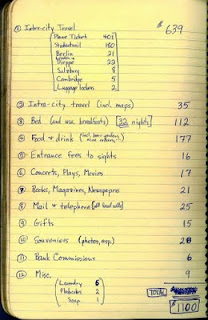 ① Inter-city Travel $ 639
Plane Ticket 401
Studentrail 160
Berlin 21
Dieppe 22
Salzburg 8
Cambridge 5
Luggage lockers 2
② Intra-city travel (incl. maps) 35
③ Bed (and use breakfasts) [32 nights] 112
④ Food & drink 177
⑤ Entrance fees to sights 16
⑥ Concerts, Plays, Movies 17
⑦ Books, Magazines, Newspapers 21
⑧ Mail & telephone 25
⑨ Gifts 15
⑩ Souvenirs (photos, esp.) 28
⑪ Bank Commissions 6
⑫ Misc. 9
Laundry 6
2
Soap 1
TOTAL
$1100